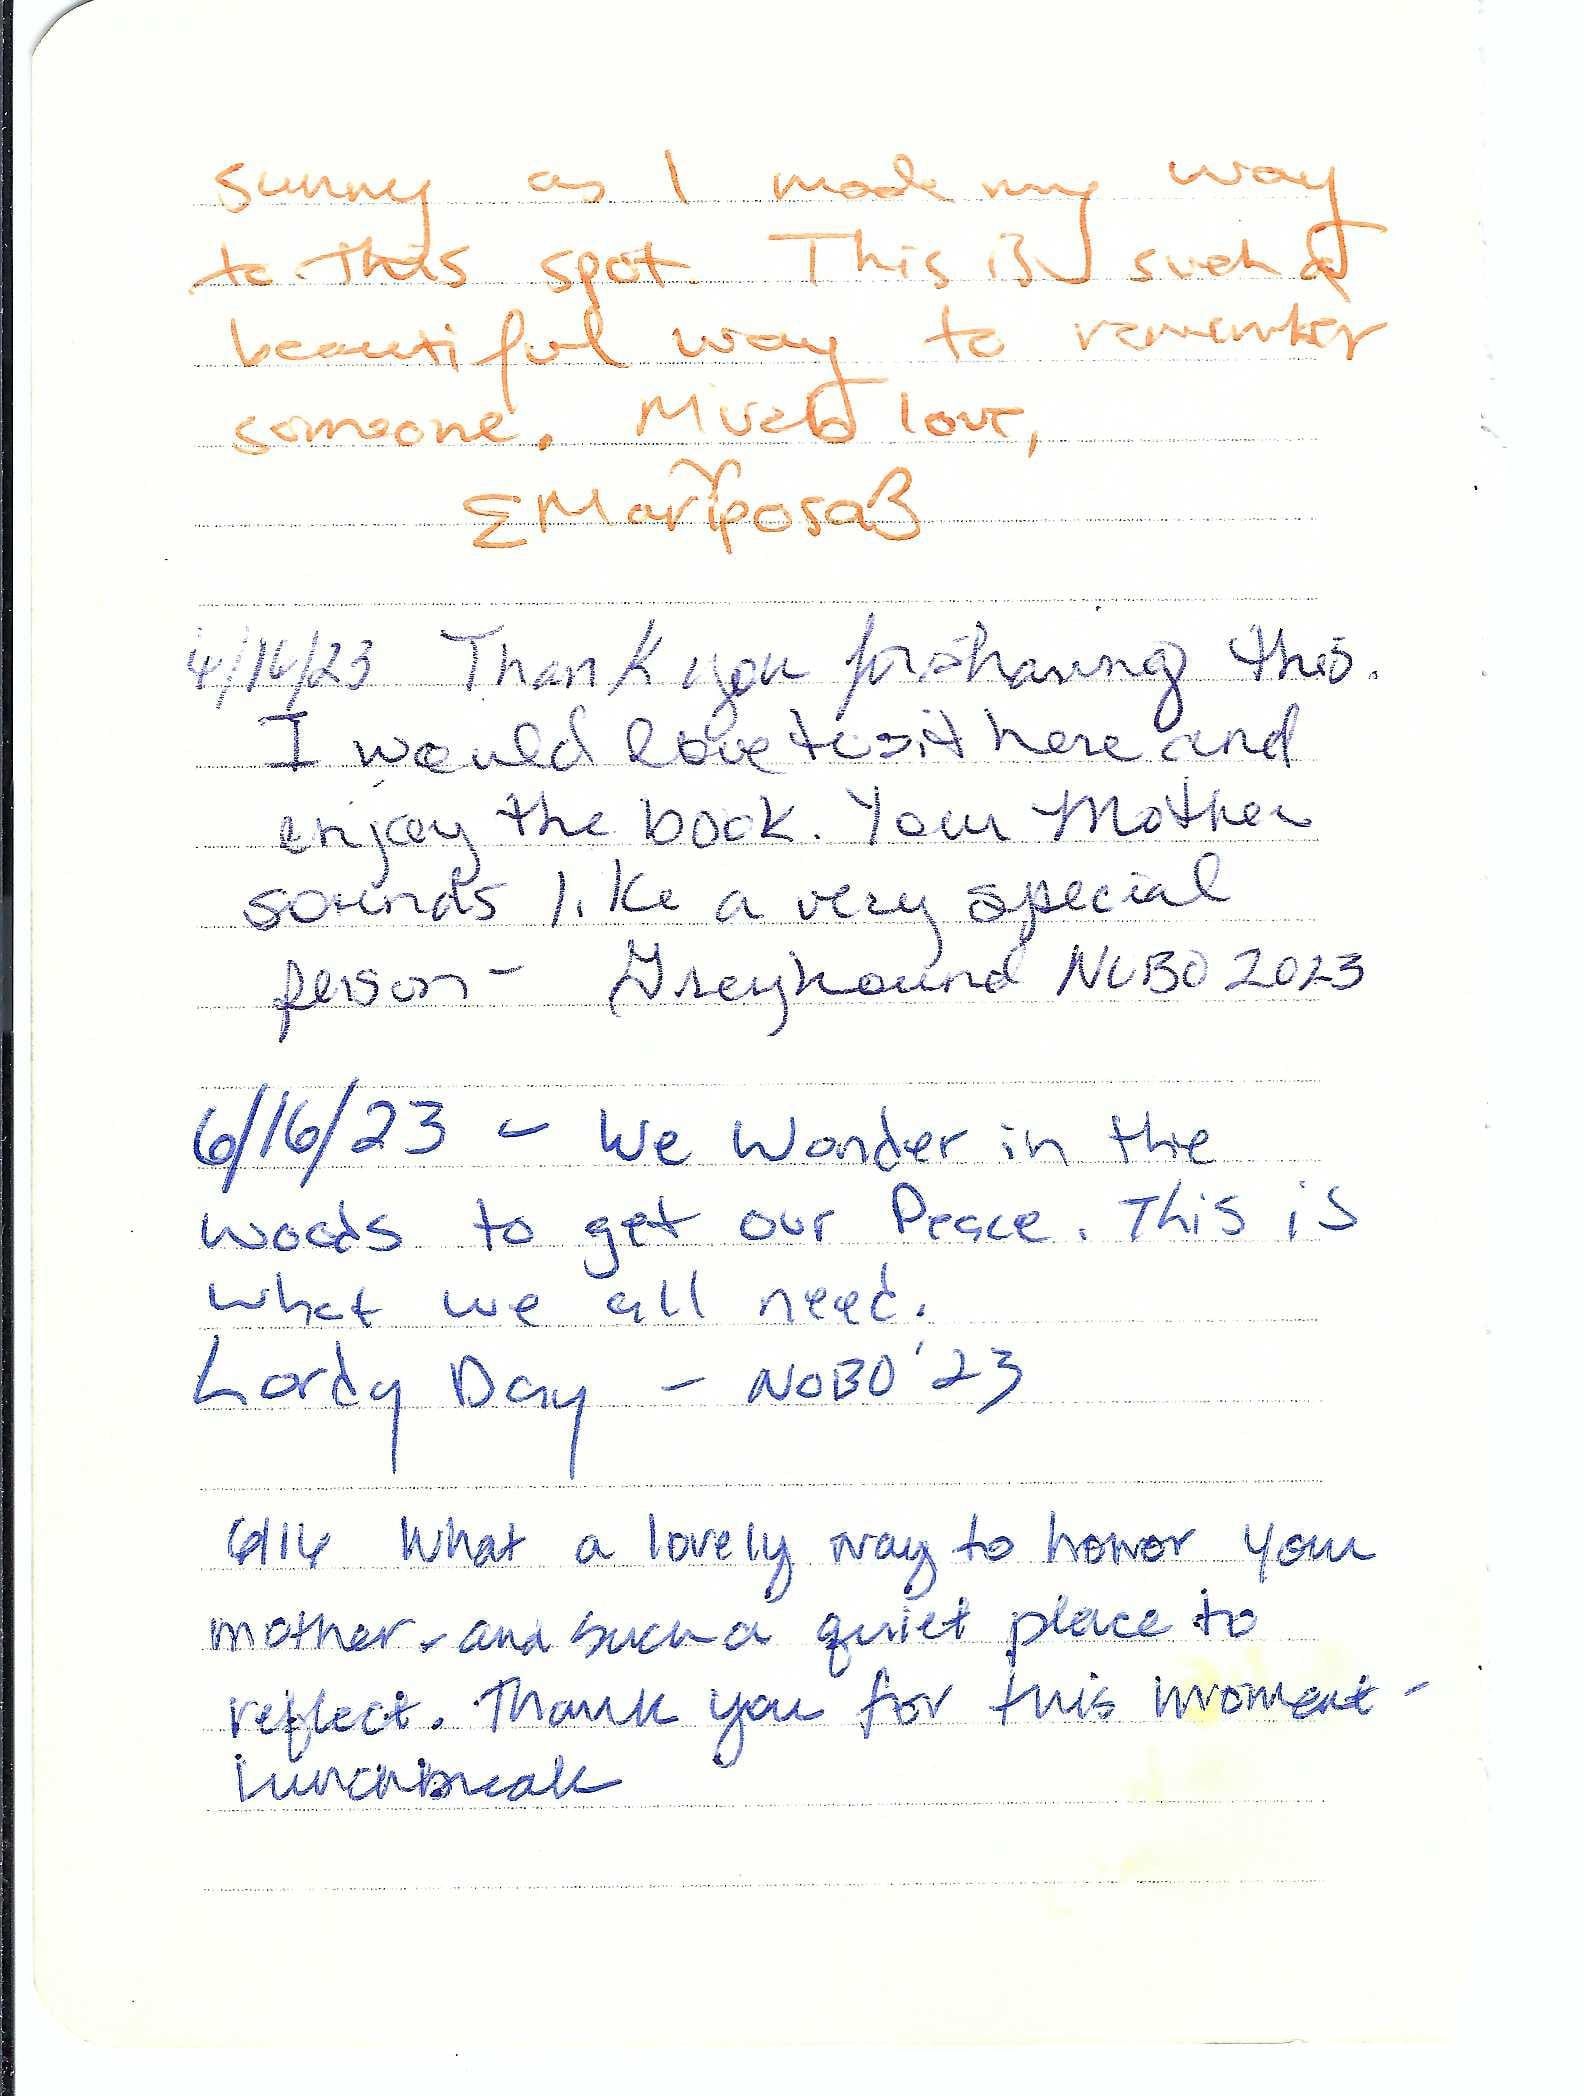 sunny as I made my way
to this spot. This is such a
beautiful way to remember
someone. Much love,
ƸMariposaƷ
4/16/23 Thank you for sharing this.
I would love to sit here and
enjoy the book. Your Mother
sounds like a very special
person - Greyhound NOBO 2023
6/16/23 - We Wonder in the
woods to get our Peace. This is
what we all need.
Lordy Day - NOBO '23
6/16 What a lovely way to honor your
mother - and such a quiet place to
reflect. Thank you for this moment -
Lunchbreak